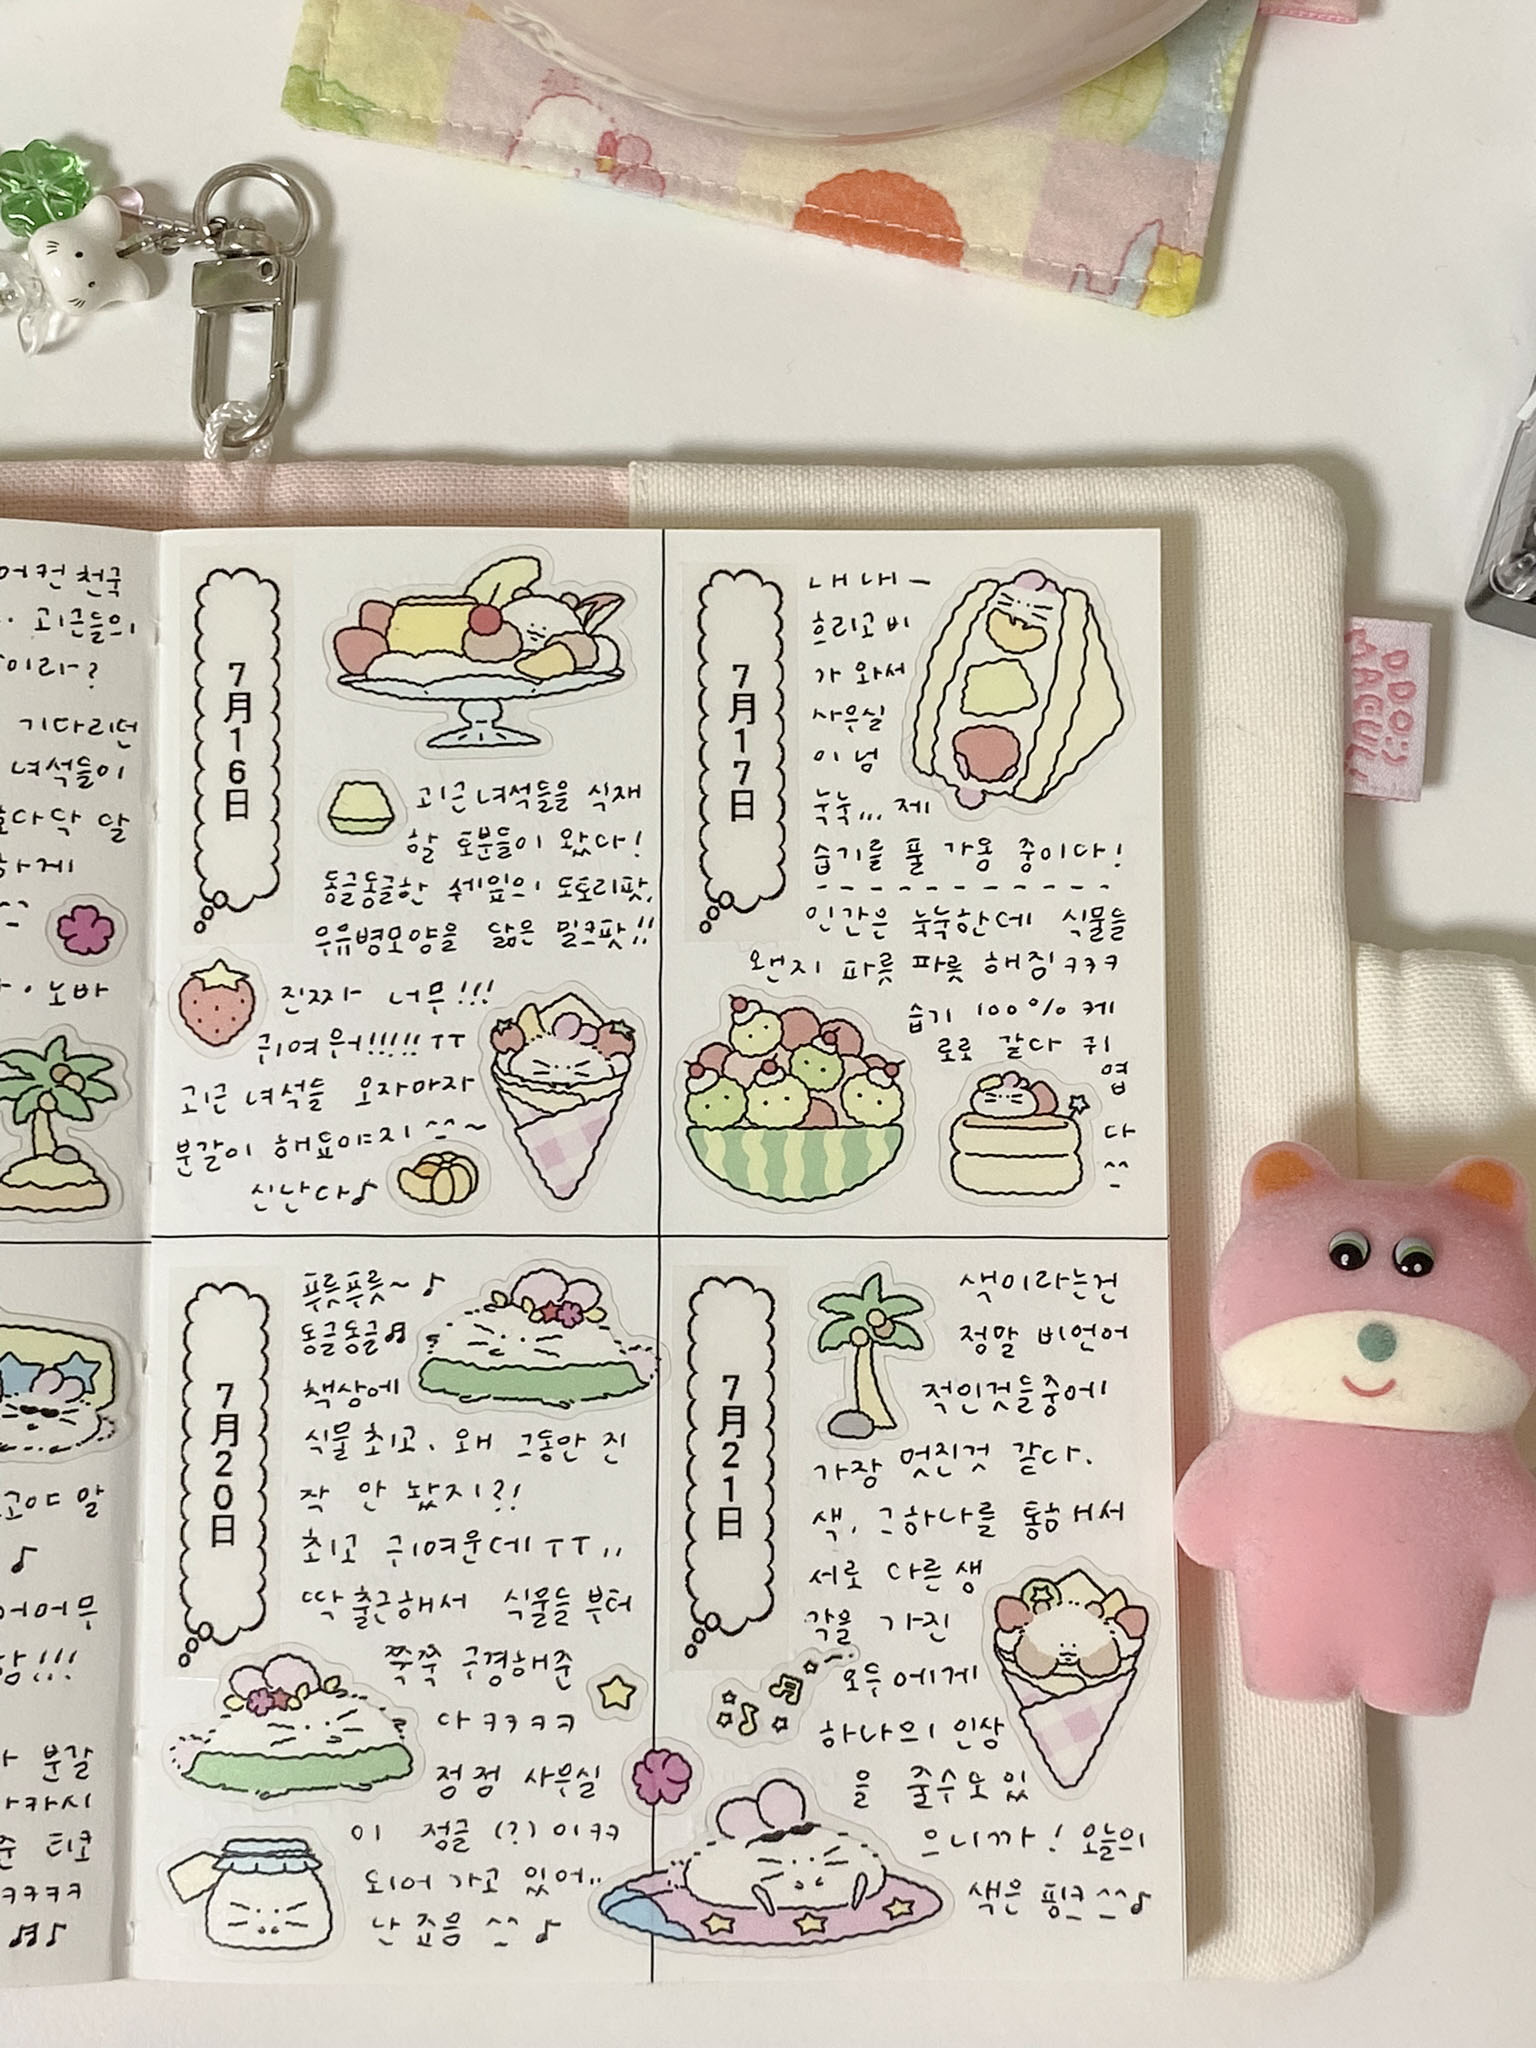 어컨 천국
고긴들의
이라?
기다리던
녀석들이
후다닥 달
하게
노바
고야 말
어어무
분갈
아카시
준 티코
ㅋㅋㅋㅋ
7月16日
고긴 녀석들을 식재
할 토분들이 왔다!
동글동글한 쉐잎의 도토리팟,
우유병모양을 닮은 밀크팟!!
진짜 너무!!!
귀여워!!!!!ㅠㅠ
고긴 녀석들 오자마자
분갈이 해죠야지 ^^~
신난다♪
7月17日
내내-
흐리고 비
가 와서
사무실
이 넘
눅눅... 제
습기를 풀 가용 중이다!
인간은 눅눅한데 식물들
왠지 파릇파릇 해짐ㅋㅋㅋ
습기 100% 케
로로 같다 귀
엽
다
^^
7月20日
푸릇푸릇~♪
동글동글♬
책상에
식물 최고. 왜 그동안 진
작 안 놨지?!
최고 귀여운데ㅠㅠ..
딱 출근해서 식물들 부터
쭉쭉 구경해준
다ㅋㅋㅋㅋ
점점 사무실
이 정글(?)이ㅋㅋ
되어 가고 있어..
난 죠음 ^^♪
7月21日
색이라는건
정말 비언어
적인것들중에
가장 멋진것 같다.
색, 그하나를 통해서
서로 다른 생
각을 가진
모두에게
하나의 인상
을 줄수도 있
으니까! 오늘의
색은 핑크^^♪